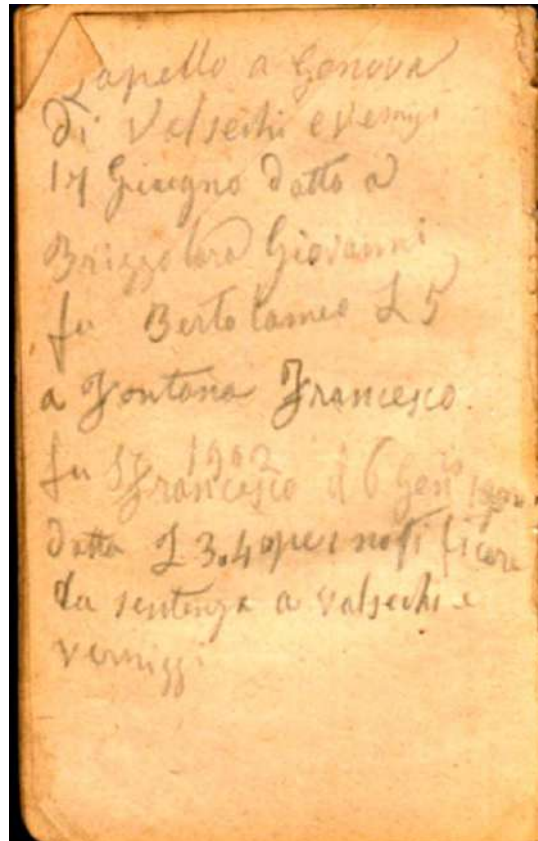 Lapello a Genova
di Valsechi e Vernizi
17 Giugno datto a
Brizzolara Giovanni
fu Bertolameo L 5
a Fontana Francesco
fu Francesco 1902 il 6 Gen
datto L 3.40 per notificare
la sentenza a valsechi e
vernizzi